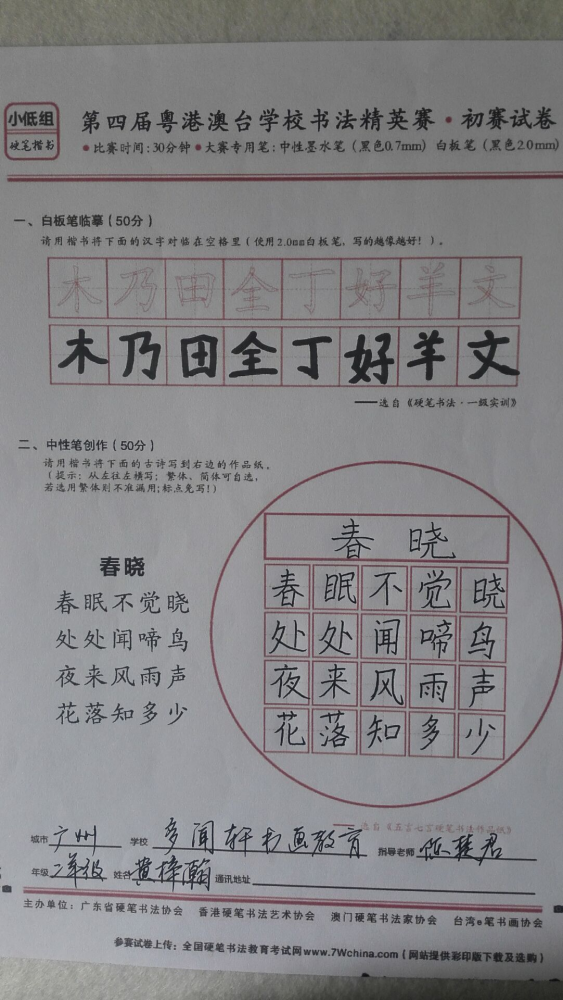 小低组
硬笔楷书
第四届粤港澳台学校书法精英赛·初赛试卷
●比赛时间:30分钟 ●大赛专用笔:中性墨水笔(黑色0.7mm) 白板笔(黑色2.0mm)
一、白板笔临摹(50分)
请用楷书将下面的汉字对临在空格里(使用2.0mm白板笔,写的越像越好!)。
木乃田全丁好羊文
木乃田全丁好羊文
——选自《硬笔书法·一级实训》
二、中性笔创作(50分)
请用楷书将下面的古诗写到右边的作品纸。
(提示:从左往右横写;繁体、简体可自选,
若选用繁体则不准漏用;标点免写!)
春晓
春眠不觉晓
处处闻啼鸟
夜来风雨声
花落知多少
春晓
春眠不觉晓
处处闻啼鸟
夜来风雨声
花落知多少
——选自《五言七言硬笔书法作品纸》
城市 广州 学校 多闻轩书画教育 指导老师 陈 君
年级 二年级 姓名 黄梓瀚 通讯地址
主办单位:广东省硬笔书法协会 香港硬笔书法艺术协会 澳门硬笔书法家协会 台湾e笔书画协会
参赛试卷上传:全国硬笔书法教育考试网www.7Wchina.com(网站提供彩印版下载及选购)